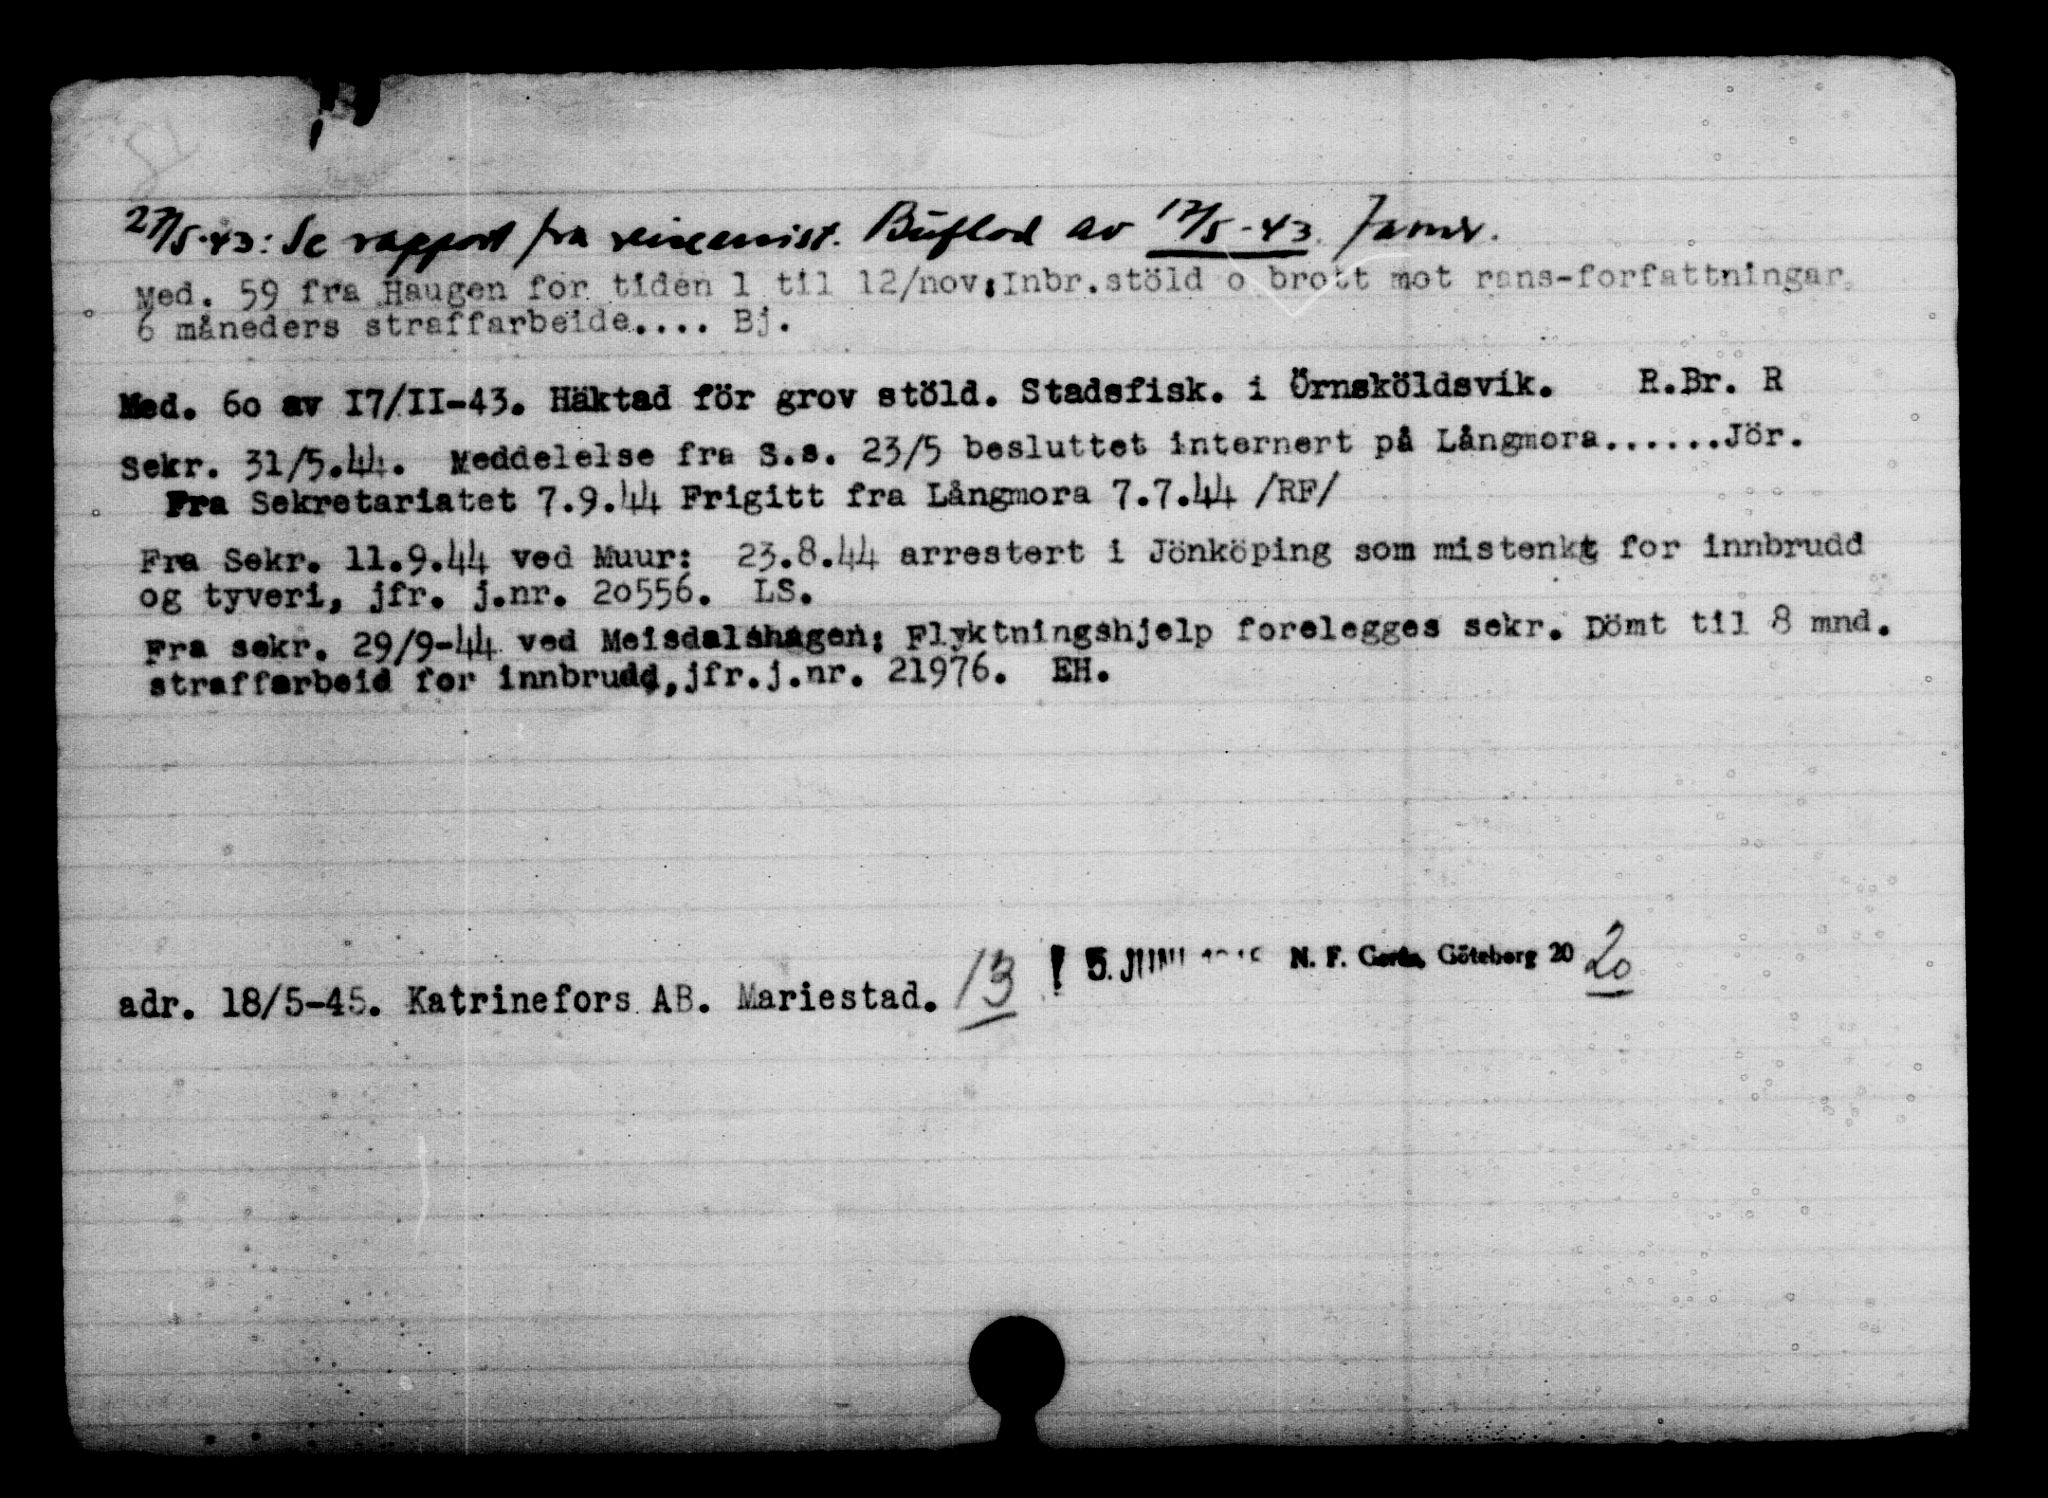 27/5-43: Se rapport fra reiseassist. Buflod av 17/5-43.
Med. 59 fra Haugen for tiden 1 til 12/nov: Inbr.stöld o brott mot rans-forfattningar.
6 måneders straffarbeide.... Bj.
Med. 6o av I7/II-43. Häktad för grov stöld. Stadsfisk. i Örnsköldsvik. R.Br. R
Sekr. 31/5.44. Meddelelse fra S.s. 23/5 besluttet internert på Långmora......Jör.
Fra Sekretariatet 7.9.44 Frigitt fra Långmora 7.7.44 /RF/
Fra Sekr. 11.9.44 ved Muur: 23.8.44 arrestert i Jönköping som mistenkt for innbrudd
og tyveri, jfr. j.nr. 2o556. LS.
Fra sekr. 29/9-44 ved Meisdalshagen: Flyktningshjelp forelegges sekr. Dömt til 8 mnd.
straffarbeid for innbrudd,jfr.j.nr. 21976. EH.
! 5. JUNI N. F. Göteborg 20 20
adr. 18/5-45. Katrinefors AB. Mariestad. 13